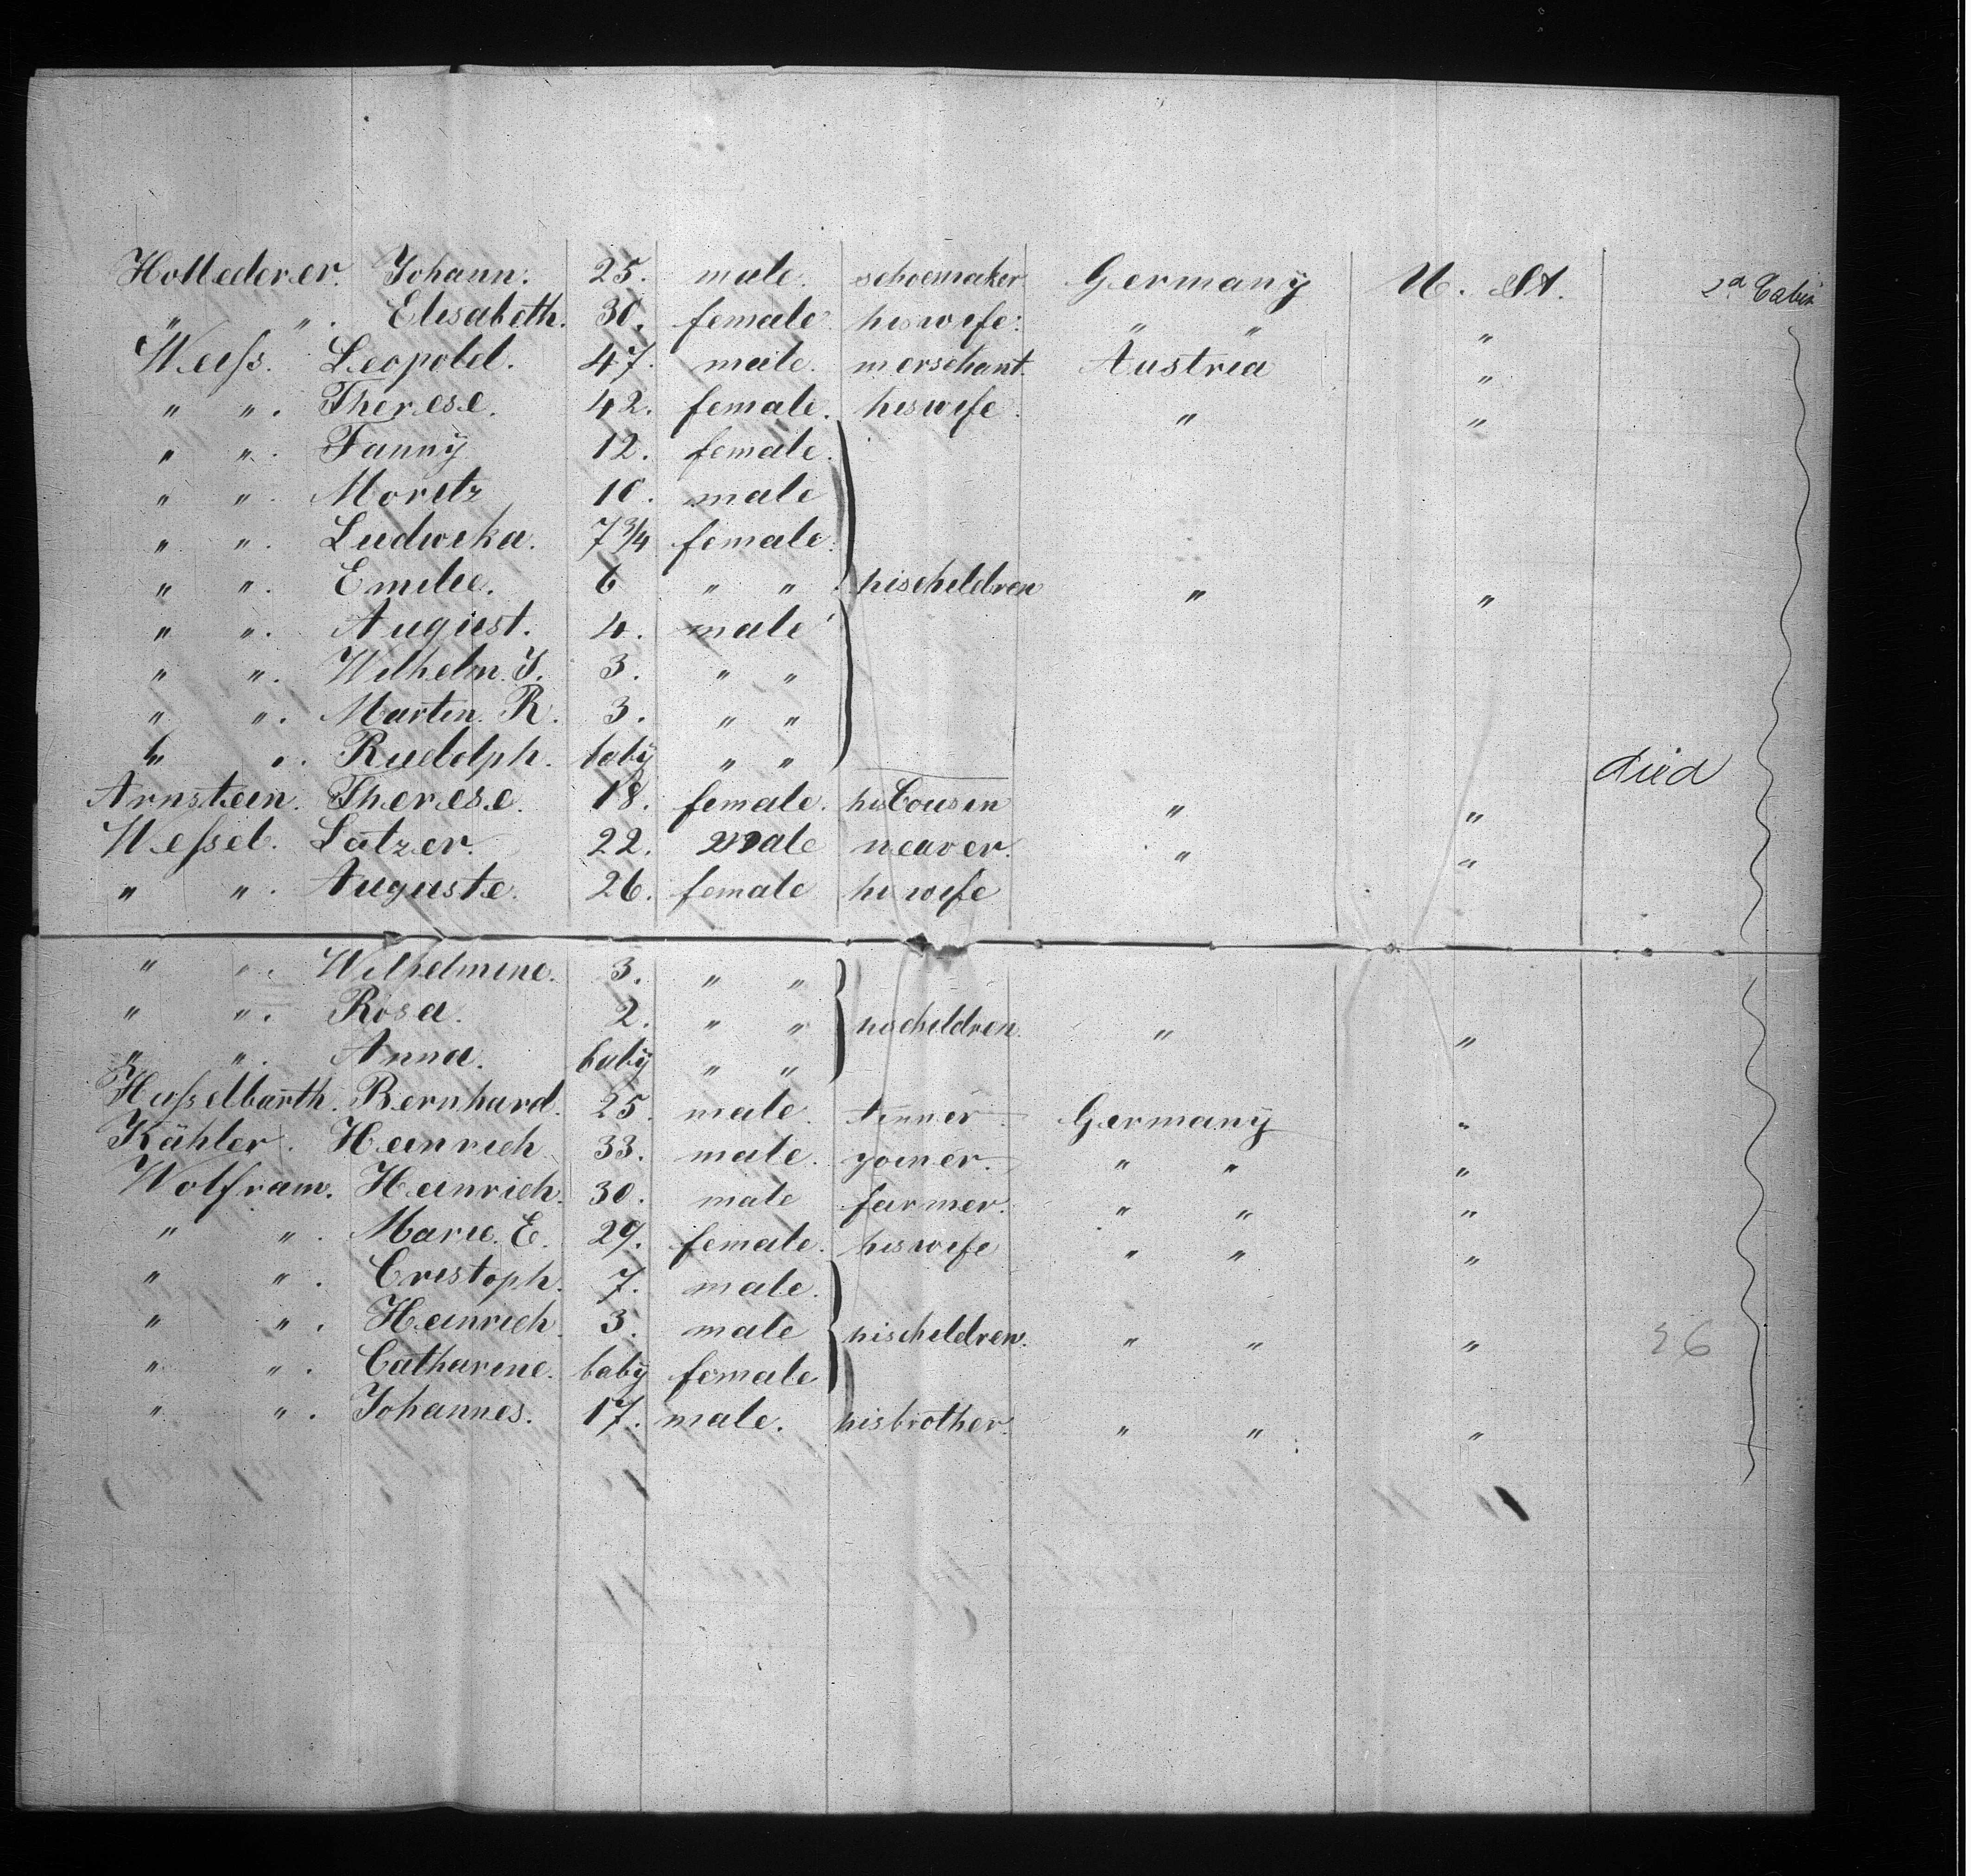 Hollederer. Johann. 25. male. schoemaker Germany U. St. 2d Cabin
" " . Elisabeth. 30. female. his wife. " " "
Weiſs. Leopold. 47. male. merschant. Austria "
" " . Therese. 42. female. his wife. " "
" " . Fanny 12. female.
" " . Moritz 10. male
" " . Ludwika. 7 3/4 female.
" " . Emilie. 6 " " his children " "
" " . August. 4. male
" " . Wilhelm. J. 3. " "
" " . Martin. R. 3. " "
" " . Rudolph. baby " " died
Arnstein. Therese. 18. female. his Cousin " "
Weſsel. Latzer. 22. male weaver. " "
" " . Auguste. 26. female hi wife
" " . Wilhelmine. 3. " "
" " . Rosa. 2. " " his children. " "
" " . Anna. baby " "
Haſselbarth. Bernhard. 25. male. tinner Germany "
Kähler. Heinrich 33. male. yoiner. " " "
Wolfram. Heinrich. 30. male farmer. " " "
" " . Marie. E. 29. female. his wife " " "
" " . Cristoph. 7. male.
" " . Heinrich. 3. male his children. " " " 36
" " . Catharine. baby female
" " . Johannes. 17. male. his brother. " " "